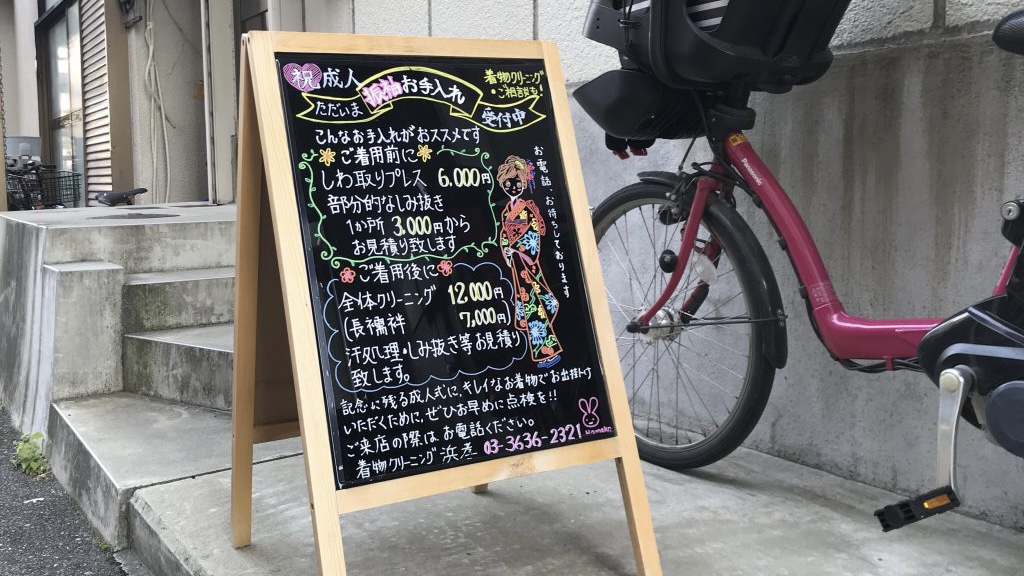 祝成人
振袖お手入れ
着物クリーニング
・ご相談も!
ただいま
受付中
こんなお手入れがおススメです
ご着用前に
しわ取りプレス 6.000円
部分的なしみ抜き
1か所 3.000円から
お見積り致します
ご着用後に
全体クリーニング 12.000円
(長襦袢 7,000円)
汗処理・しみ抜き等お見積り
致します。
お電話、お待ちしております
記念に残る成人式に、キレイなお着物でお出掛け
いただくために、ぜひお早めに点検を!!
ご来店の際は、お電話ください。
着物クリーニング 浜 03-3636-2321
Panasonic